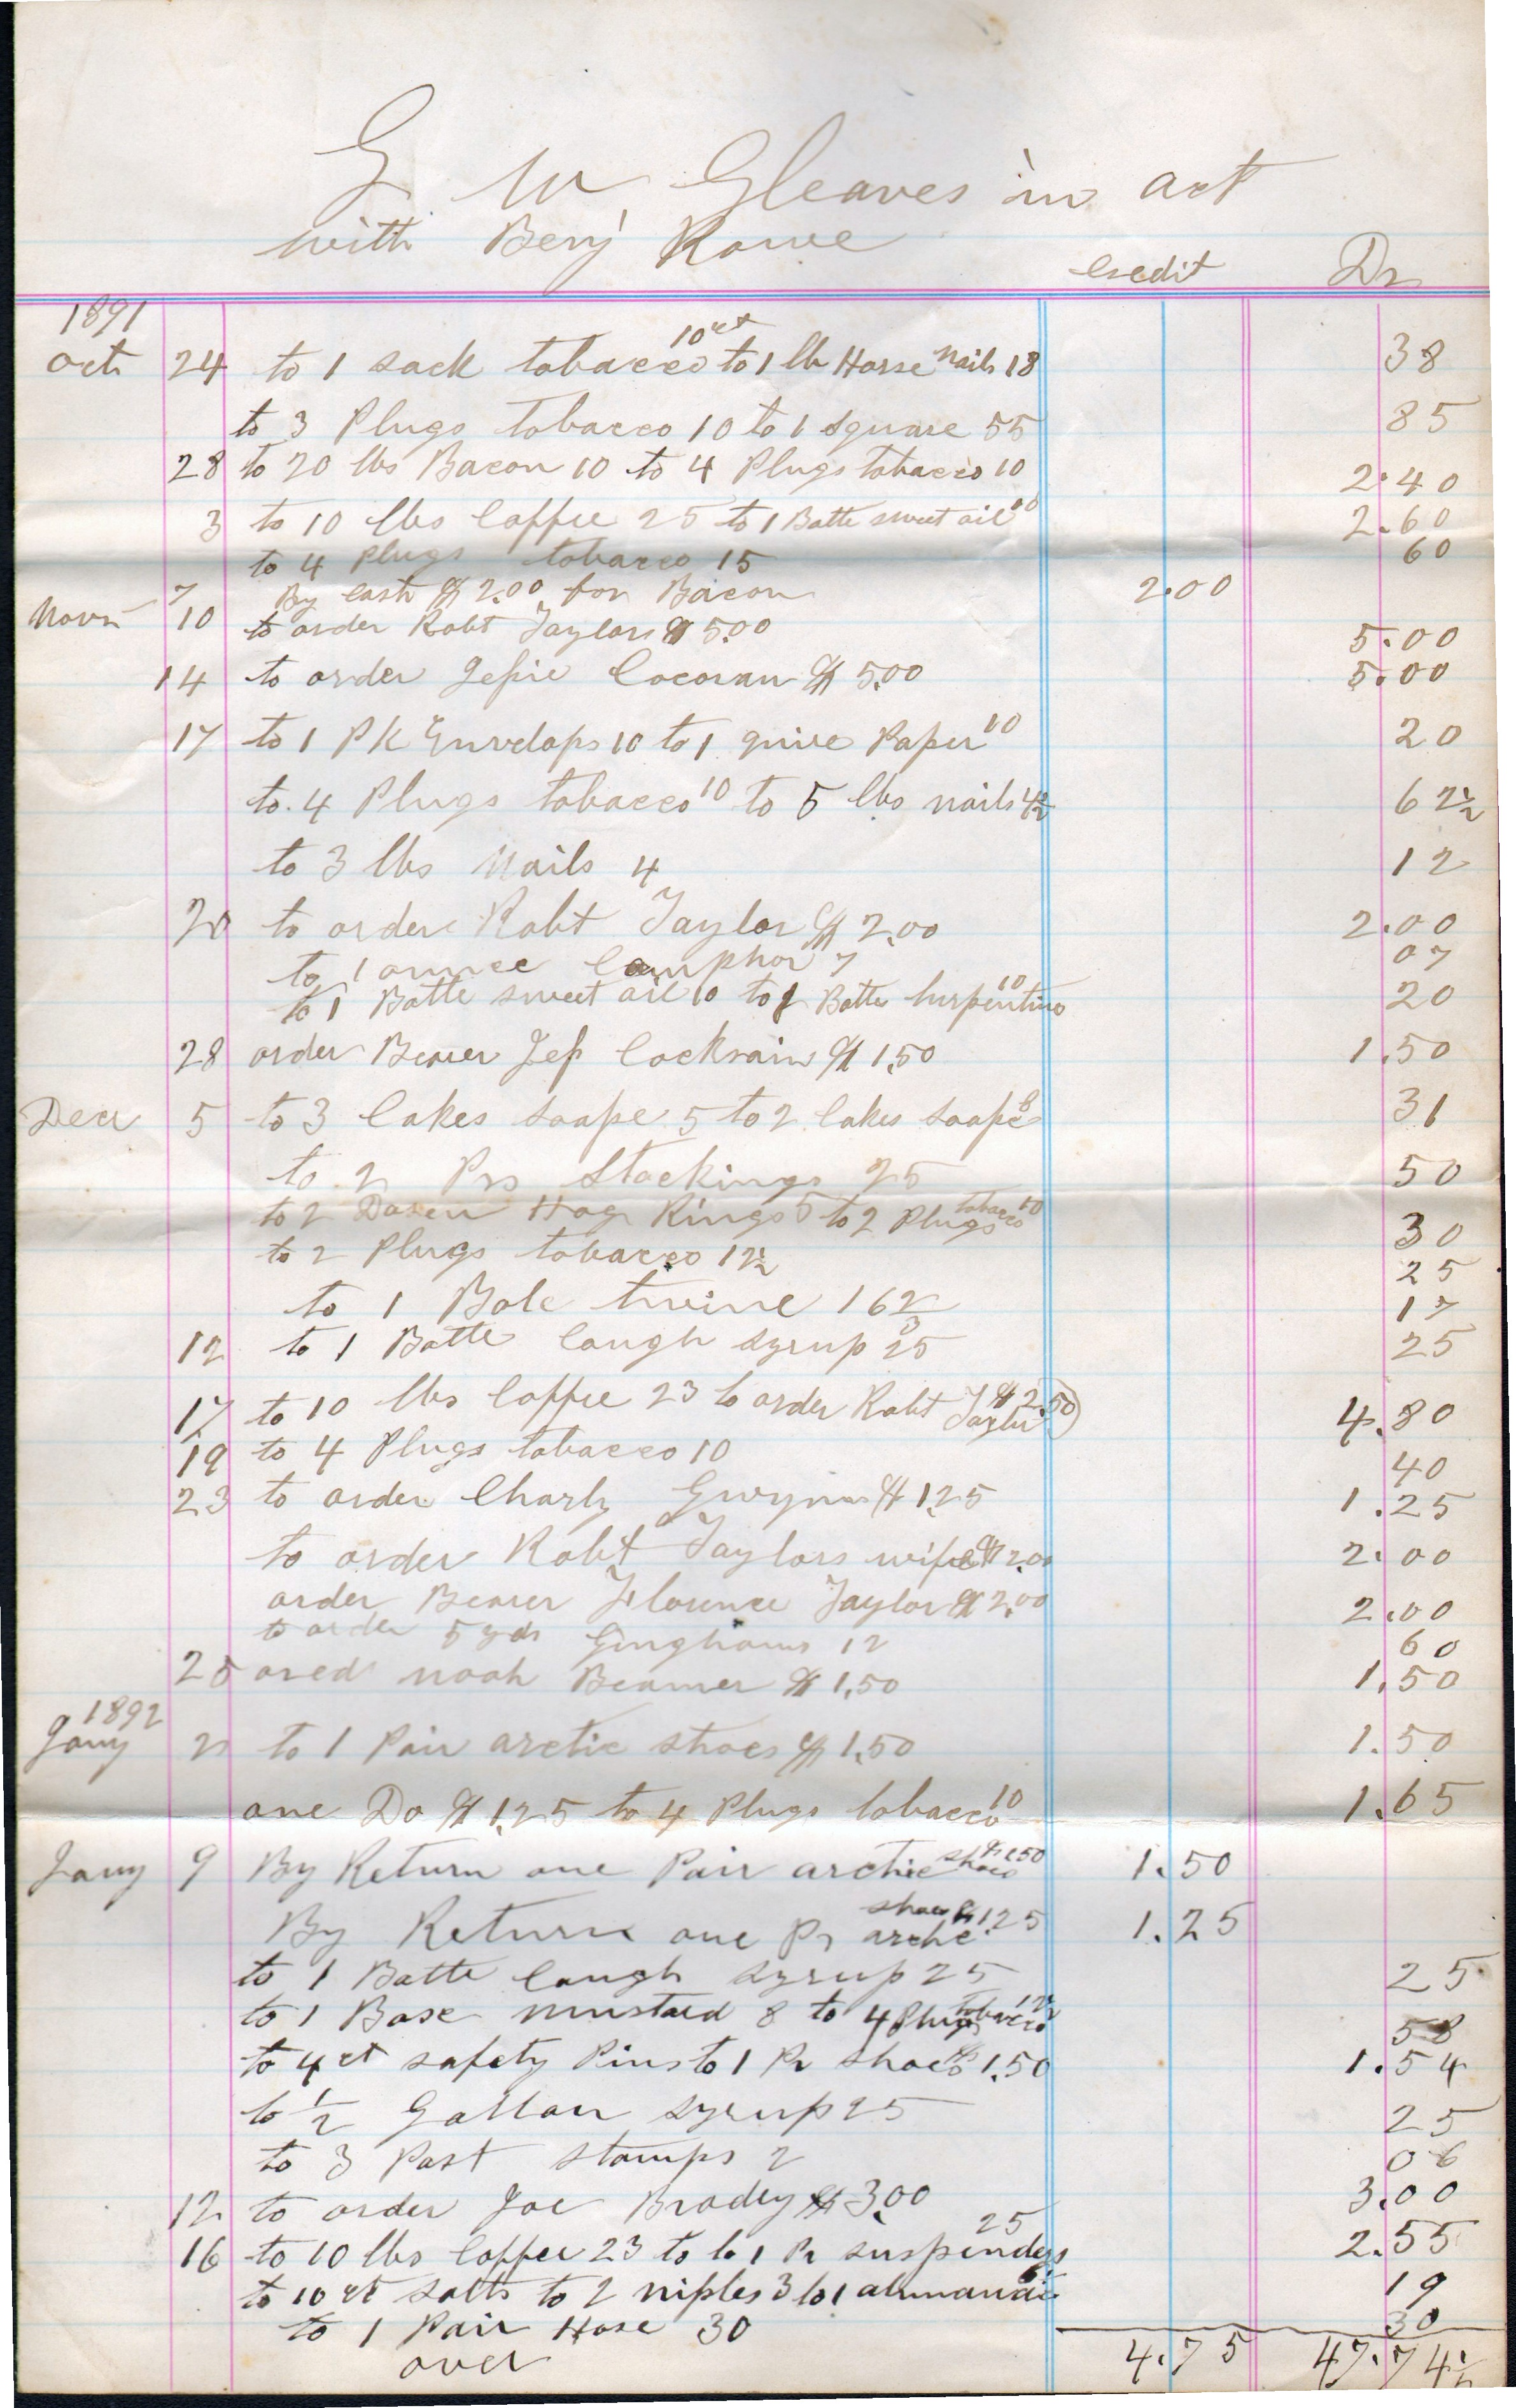 G W Gleaves in act
with Benj Rowe
Credit Dr
1891
Oct 24 to 1 sack tobacco 10ct to 1 lb Horse Nails 18 38
to 3 Plugs tobacco 10 to 1 square 55 85
28 to 20 lbs Bacon 10 to 4 Plugs tobacco 10 2.40
3 to 10 lbs Coffee 25 to 1 Botte sweet oil 10 2.60
to 4 Plugs tobacco 15 60
7 By Cash $2.00 for Bacon 2.00
Novr 10 to order Robt Taylor $5.00 5.00
14 to order Jefsie Cocoran $5.00 5.00
17 to 1 PK Envelops 10 to 1 quire Paper 10 20
to 4 Plugs tobacco 10 to 5 lbs nails 4½ 62½
to 3 lbs Nails 4 12
20 to order Robt Taylor $2.00 2.00
to 1 ounce Camphor 7 07
to 1 Botte sweet oil 10 to 1 Botte turpentine 10 20
28 order Bearer Jef Cocksain $1.50 1.50
Decr 5 to 3 Cakes soape 5 to 2 Cakes soape 8 31
to 2 Prs Stockings 25 50
to 2 Dozen Hog Rings 5 to 2 Plugs tobacco 10 30
to 2 Plugs tobacco 12½ 25
to 1 Bole twine 16⅔ 17
12 to 1 Botte Cough syrup 25 25
17 to 10 lbs Coffee 23 to order Robt Taylor $2.50 4.80
19 to 4 Plugs tobacco 10 40
23 to order Charly Gwynn $1.25 1.25
to order Robt Taylors wife $2.00 2.00
order Bearer Florence Taylor $2.00 2.00
to order 5 yds Ginghams 12 60
25 ored noah Beamer $1.50 1.50
1892
Jany 2 to 1 Pair arctic shoes $1.50 1.50
one Do $1.25 to 4 Plugs tobacco 10 1.65
Jany 9 By Return one Pair arctic shoes $1.50 1.50
By Return one Pr arctic shoes $1.25 1.25
to 1 Botte Cough syrup 25 25
to 1 Boxe mustard 8 to 4 Plugs tobacco 12½ 58
to 4ct safety Pins to 1 Pr shoes $1.50 1.54
to ½ Gallon syrup 25 25
to 3 Post stamps 2 06
12 to order Joe Bradey $3.00 3.00
16 to 10 lbs Coffee 23 to to 1 Pr suspenders 25 2.55
to 10ct salts to 2 niples 3 to 1 almanac 19
to 1 Pair Hose 30 30
over 4.75 47.74½